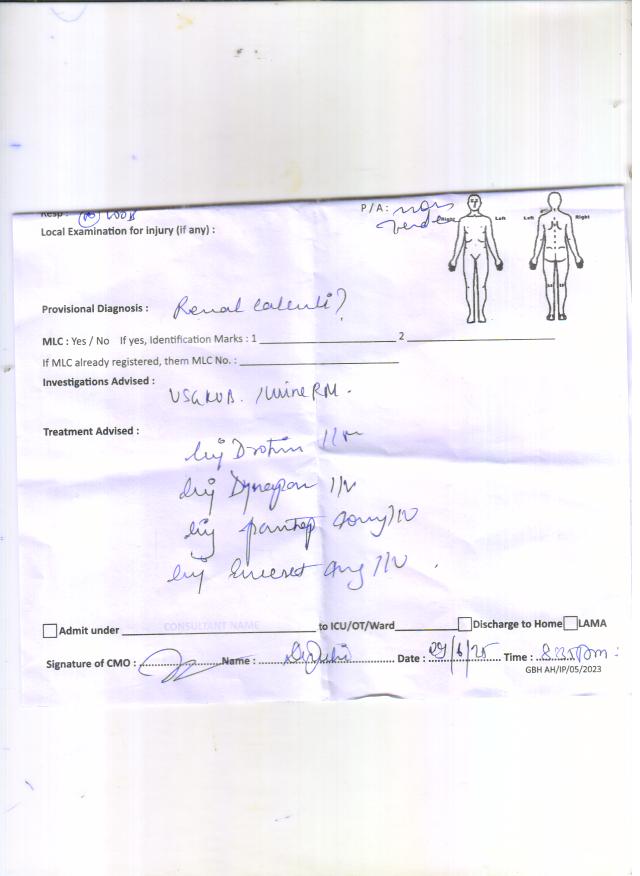 Resp :
P / A :
Right Left Left Right
Local Examination for injury (if any) :
Provisional Diagnosis : Renal Calculi?
MLC : Yes / No If yes, Identification Marks : 1 2
If MLC already registered, them MLC No. :
Investigations Advised :
USG KUB. / Urine RM.
Treatment Advised :
Inj Drotin I/M
Inj Dynapar I/V
Inj pantop 40mg I/V
Inj Emeset 4mg I/V
Admit under CONSULTANT NAME to ICU/OT/Ward Discharge to Home LAMA
Signature of CMO : Name : Date : 29/6/25 Time : 8:35 pm
GBH AH/IP/05/2023